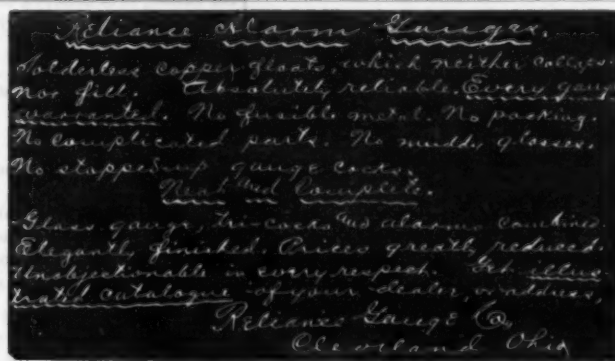 Reliance Alarm Gauges.
Solderless copper floats, which neither collapse
nor fill. Absolutely reliable. Every gauge
warranted. No fusible metal. No packing.
No complicated parts. No muddy glasses.
No stopped up gauge cocks.
Neat and Complete.
Glass gauge, try cocks and alarm combined.
Elegantly finished. Prices greatly reduced.
Unobjectionable in every respect. Get illus
trated catalogue of your dealer, or address,
Reliance Gauge Co,
Cleveland Ohio